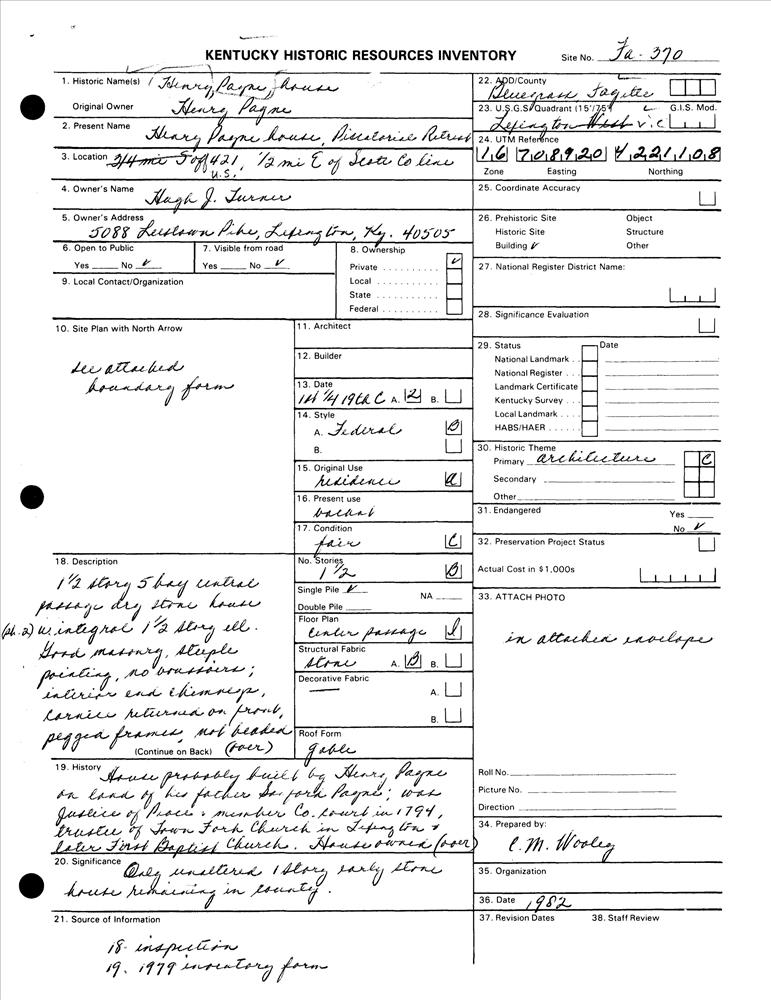 KENTUCKY HISTORIC RESOURCES INVENTORY
Site No. Fa-370
1. Historic Name(s) (Henry Payne house
Original Owner Henry Payne
2. Present Name Henry Payne house, Piscatorial Retreat
3. Location 3/4 mi S of 421, 1/2 mi E of Scott Co line
U.S.
4. Owner's Name Hugh J. Turner
5. Owner's Address
5088 Leestown Pike, Lexington, Ky. 40505
6. Open to Public
Yes No ✓
7. Visible from road
Yes No ✓
8. Ownership
Private ✓
Local
State
Federal
9. Local Contact/Organization
10. Site Plan with North Arrow
see attached
boundary form
11. Architect
12. Builder
13. Date
1st 1/4 19th C A. 2 B.
14. Style
A. Federal B
B.
15. Original Use
residence a
16. Present use
17. Condition
fair C
18. Description
1 1/2 story 5 bay central
passage dry stone house
(ph. 2) w. integral 1 1/2 story ell.
Good masonry, steeple
pointing, no voussoirs;
interior end chimneys,
cornice returned on front,
pegged frames, not beaded
(Continue on Back) (over)
No. Stories
1 1/2 B
Single Pile ✓ NA
Double Pile
Floor Plan
center passage
Structural Fabric
stone A. B B.
Decorative Fabric
— A.
B.
Roof Form
gable
19. History House probably built by Henry Payne
on land of his father Sanford Payne; was
Justice of Peace & member Co. court in 1794,
trustee of Town Fork Church in Lexington &
later First Baptist Church. House owned (over)
20. Significance Only unaltered 1 story early stone
house remaining in county.
21. Source of Information
18- inspection
19. 1979 inventory form
22. ADD/County
Bluegrass Fayette
23. U.S.G.S. Quadrant (15'/7.5') G.I.S. Mod.
Lexington West
24. UTM Reference
16 708920 4221108
Zone Easting Northing
25. Coordinate Accuracy
26. Prehistoric Site Object
Historic Site Structure
Building ✓ Other
27. National Register District Name:
28. Significance Evaluation
29. Status Date
National Landmark
National Register
Landmark Certificate
Kentucky Survey
Local Landmark
HABS/HAER
30. Historic Theme
Primary architecture C
Secondary
Other
31. Endangered Yes
No ✓
32. Preservation Project Status
Actual Cost in $1,000s
33. ATTACH PHOTO
in attached envelope
Roll No.
Picture No.
Direction
34. Prepared by:
C. M. Wooley
35. Organization
36. Date 1982
37. Revision Dates 38. Staff Review